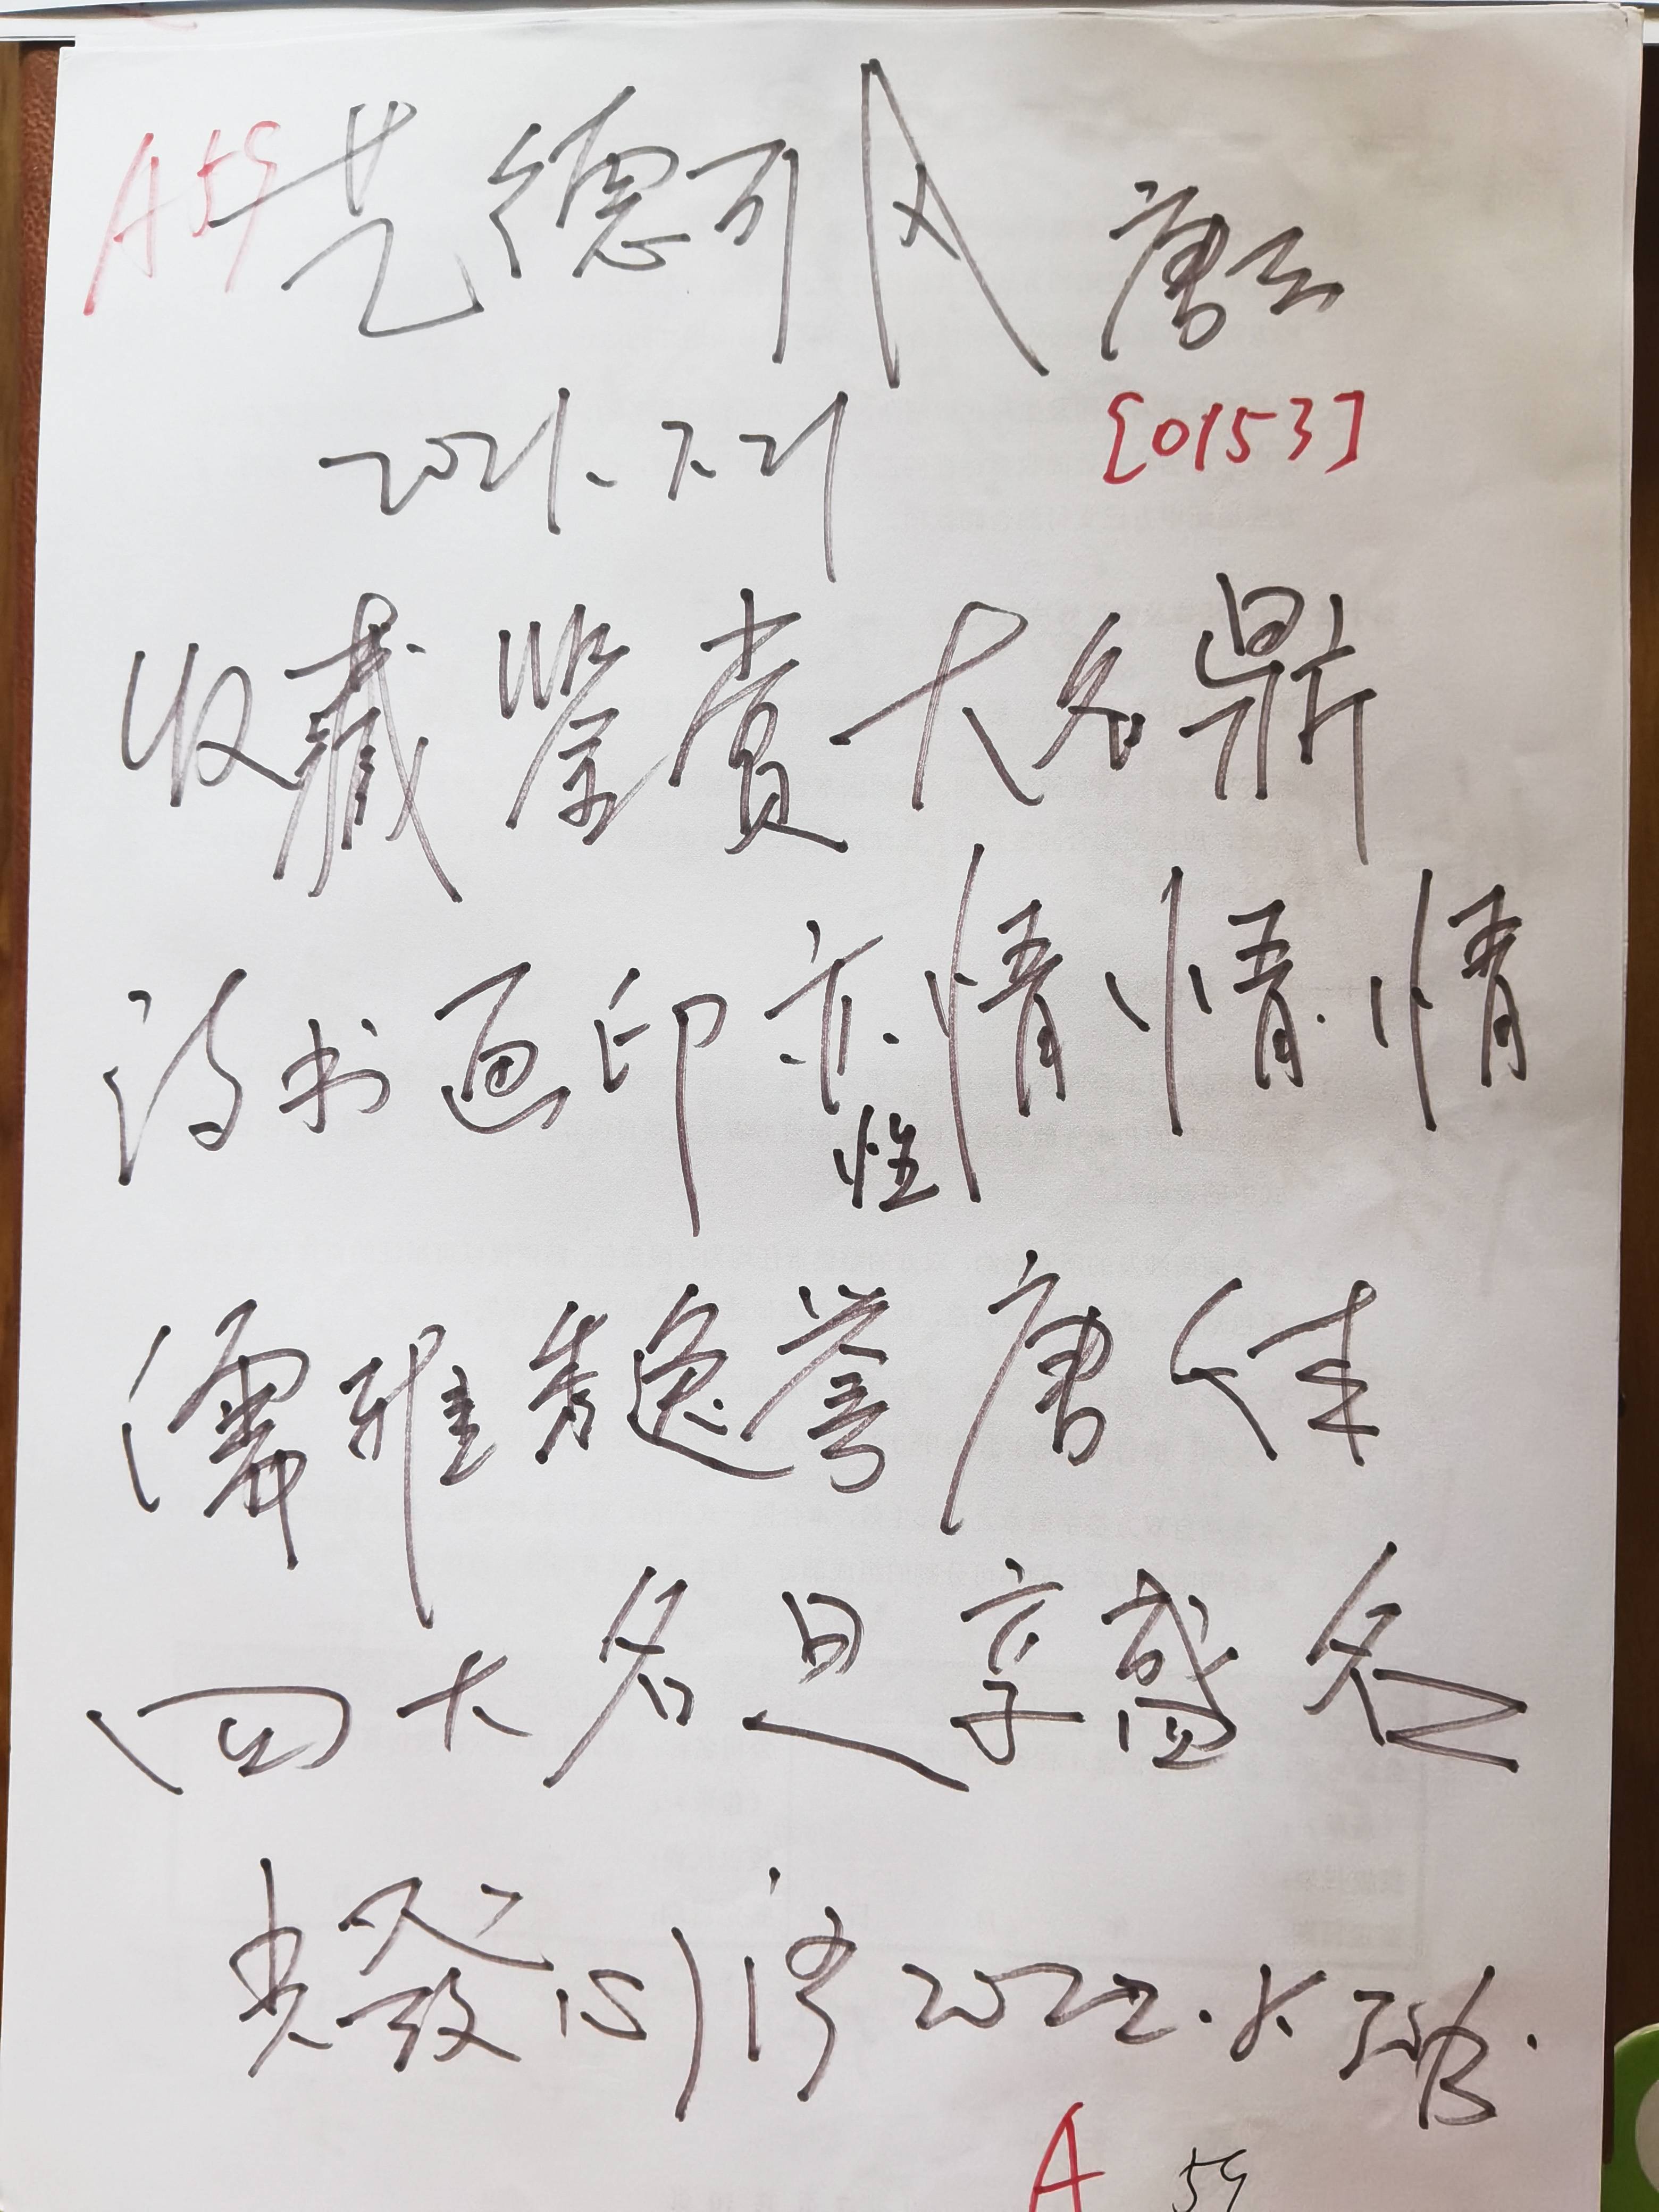 A59 艺德可风 唐云
2021.7.21 [0153]
收藏鉴赏大名鼎
诗书画印亦情情情
性
儒雅隽逸誉唐佳
四大名旦享盛名
央发 2022.
A 59